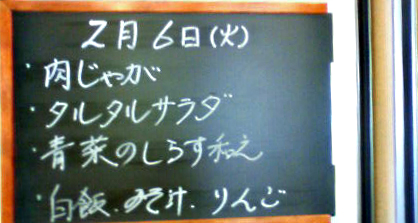 2月6日(火)
・肉じゃが
・タルタルサラダ
・青菜のしらす和え
・白飯.みそ汁.りんご